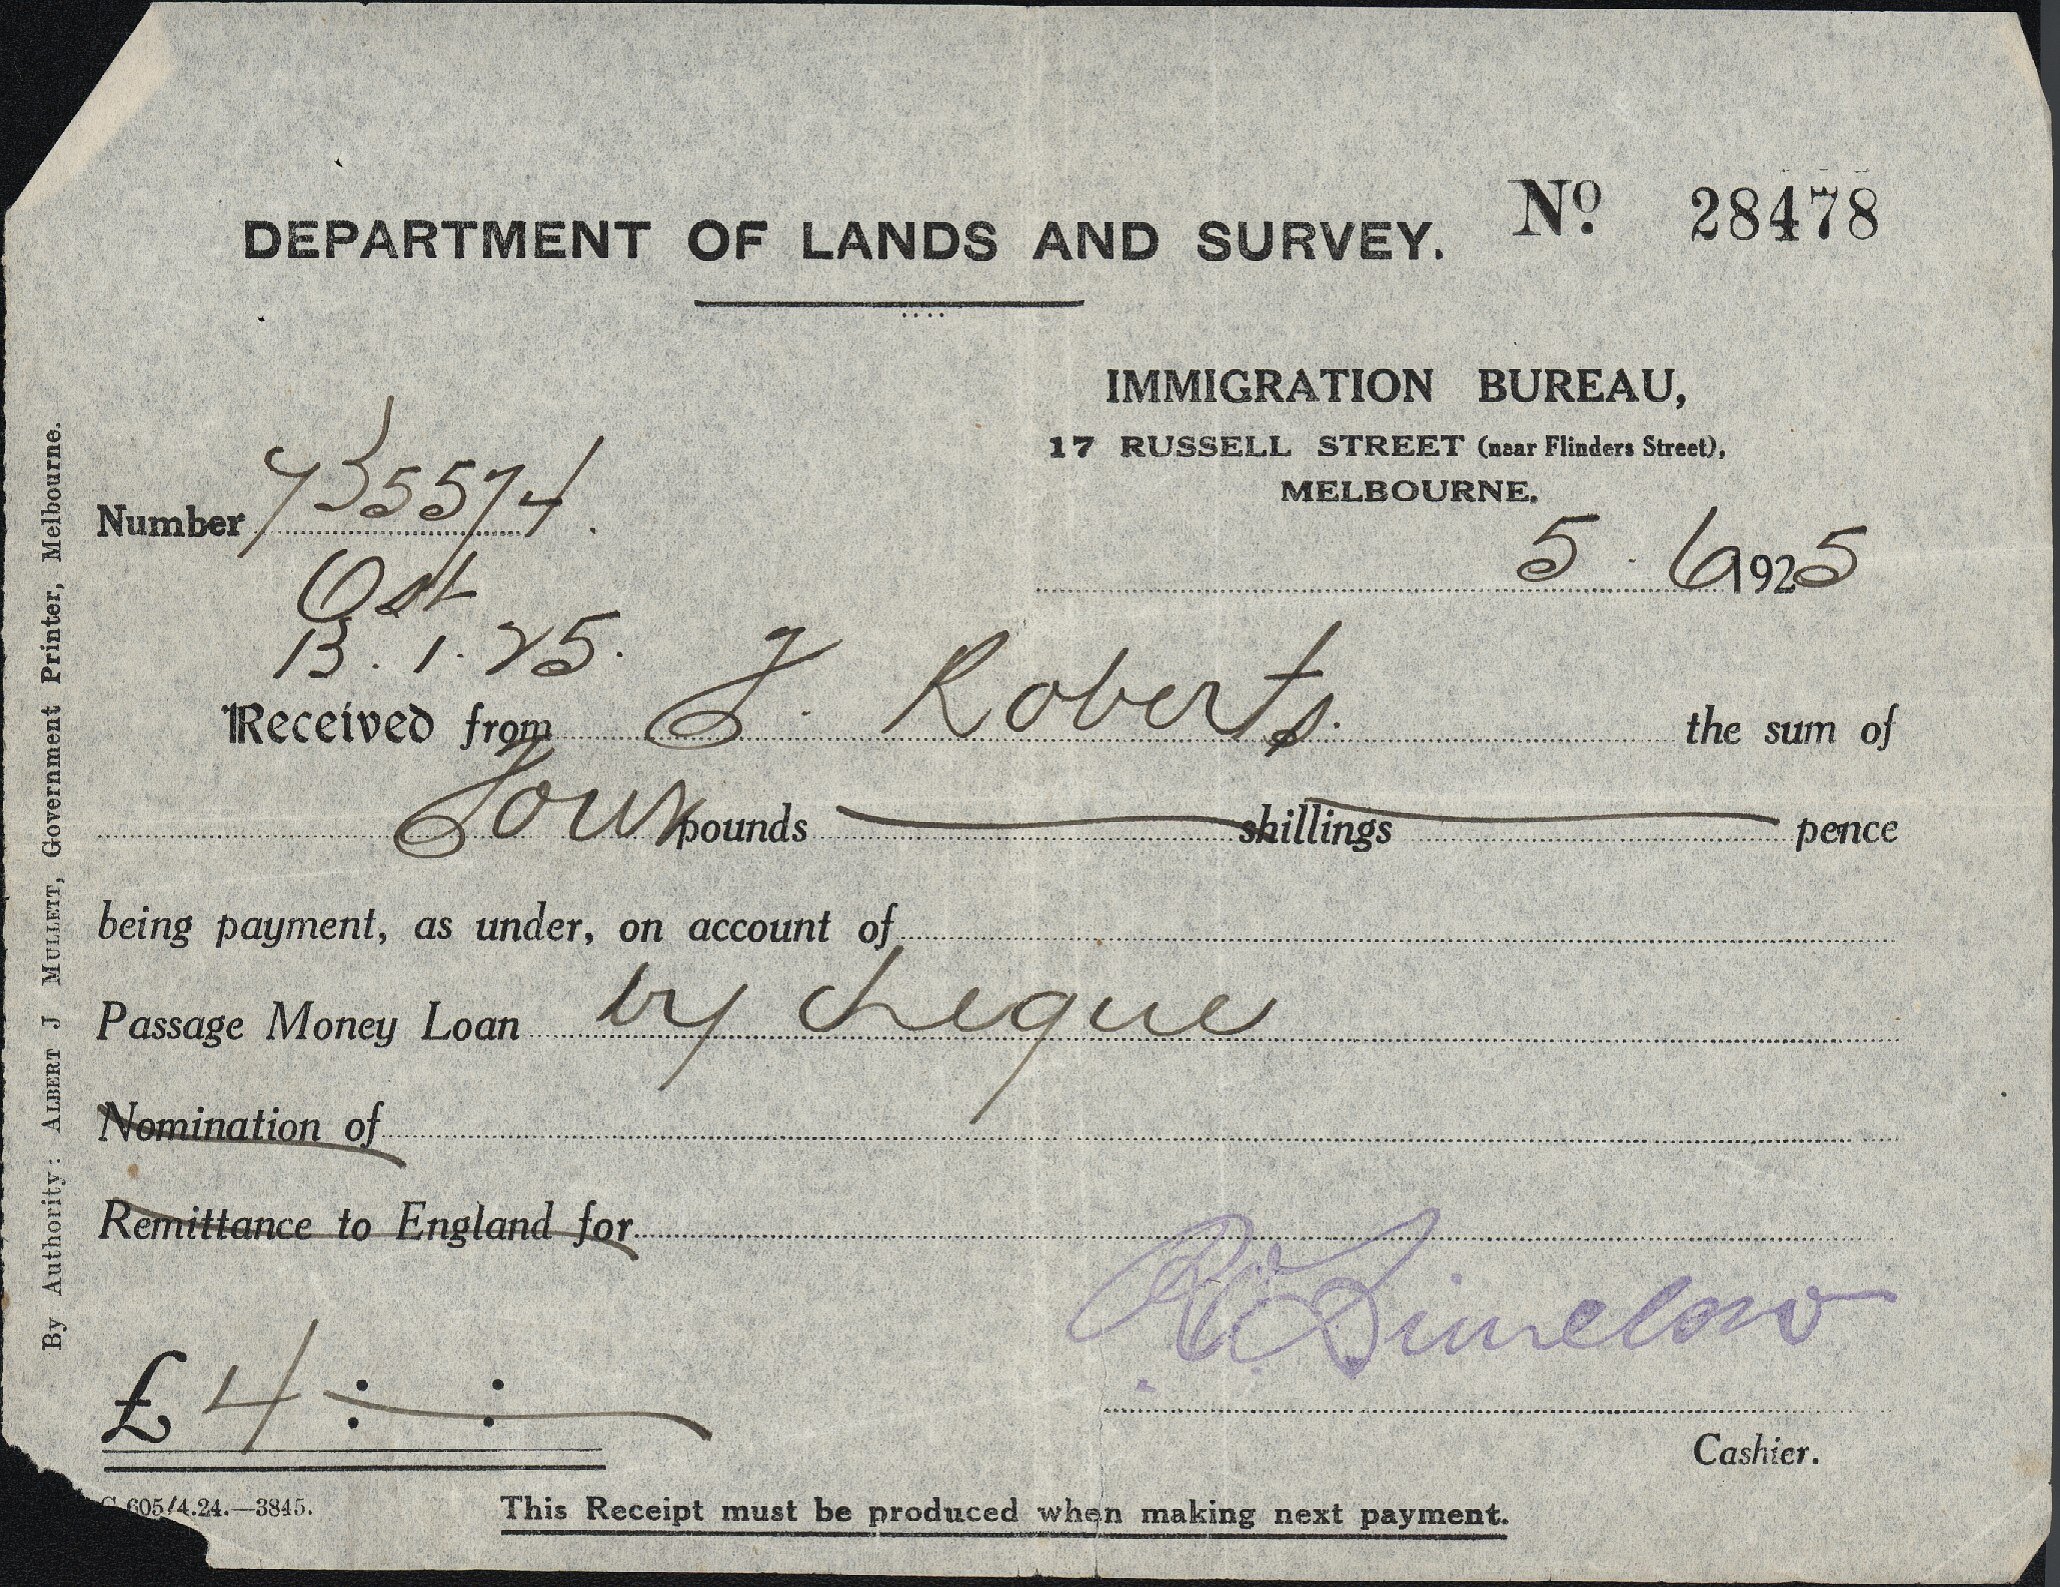 DEPARTMENT OF LANDS AND SURVEY. No. 28478
IMMIGRATION BUREAU,
17 RUSSELL STREET (near Flinders Street),
MELBOURNE.
Number 735574.
5 . 6 1925
13 . 1 . 25.
Received from J. Roberts. the sum of
Four pounds shillings pence
being payment, as under, on account of
Passage Money Loan by cheque
Nomination of
Remittance to England for
£ 4 : :
Cashier.
605/4.24.—3845.
This Receipt must be produced when making next payment.
By Authority: ALBERT J MULLETT, Government Printer, Melbourne.